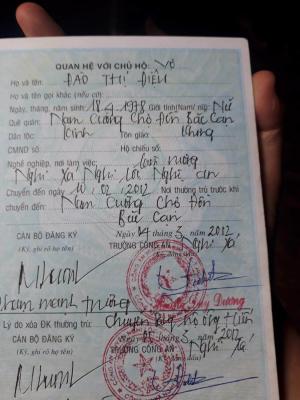 QUAN HỆ VỚI CHỦ HỘ: Vợ
Họ và tên: ĐÀO THỊ ĐIỀU
Họ và tên gọi khác (nếu có):
Ngày, tháng, năm sinh: 18.4.1978 Giới tính(Nam/ nữ): Nữ
Quê quán: Nam Cường Chợ Đồn Bắc Cạn
Dân tộc: Kinh Tôn giáo: Không
CMND số: Hộ chiếu số:
Nghề nghiệp, nơi làm việc: Làm ruộng
Nghi Xá Nghi Lộc Nghệ An
Chuyển đến ngày 10/02/2012 Nơi thường trú trước khi
chuyển đến: Nam Cường Chợ Đồn
Bắc Cạn
Ngày 14 tháng 3 năm 2012
CÁN BỘ ĐĂNG KÝ TRƯỞNG CÔNG AN Nghi Xá
(Ký, ghi rõ họ tên)
Duy Dương
Lý do xóa ĐK thường trú: Chuyển
Ngày tháng 3 năm 2012
CÁN BỘ ĐĂNG KÝ TRƯỞNG CÔNG AN Nghi Xá
(Ký, ghi rõ họ tên)